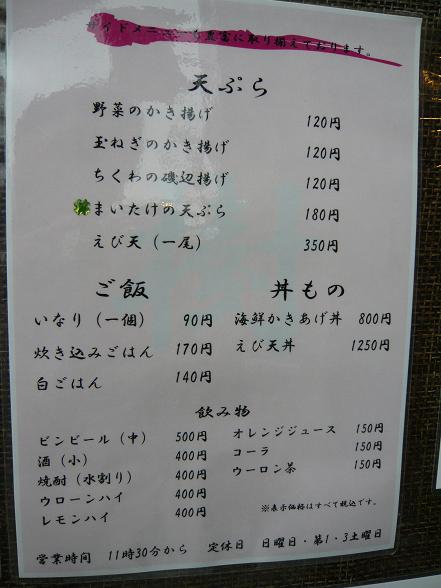 サイドメニューも豊富に取り揃えております。
天ぷら
野菜のかき揚げ 120円
玉ねぎのかき揚げ 120円
ちくわの磯辺揚げ 120円
まいたけの天ぷら 180円
えび天（一尾） 350円
ご飯
いなり（一個） 90円
炊き込みごはん 170円
白ごはん 140円
丼もの
海鮮かきあげ丼 800円
えび天丼 1250円
飲み物
ビンビール（中） 500円
酒（小） 400円
焼酎（水割り） 400円
ウローンハイ 400円
レモンハイ 400円
オレンジジュース 150円
コーラ 150円
ウーロン茶 150円
※表示価格はすべて税込です。
営業時間 11時30分から 定休日 日曜日・第1・3土曜日